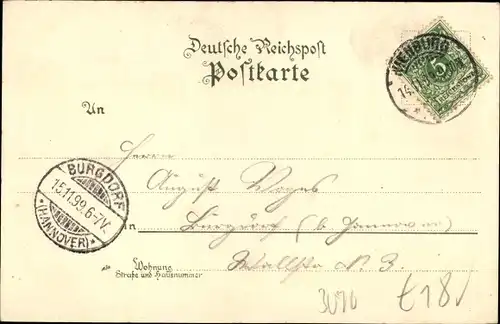 Deutsche Reichspost
Postkarte
NIENBURG
14.
5
An
Herrn
August Voges
in Burgdorf (b. Hannover)
BURGDORF
15.11.99.6-7V.
*(HANNOVER)*
Wohnung
Straße und Hausnummer
Wallstr. N. 3.
3090
£18